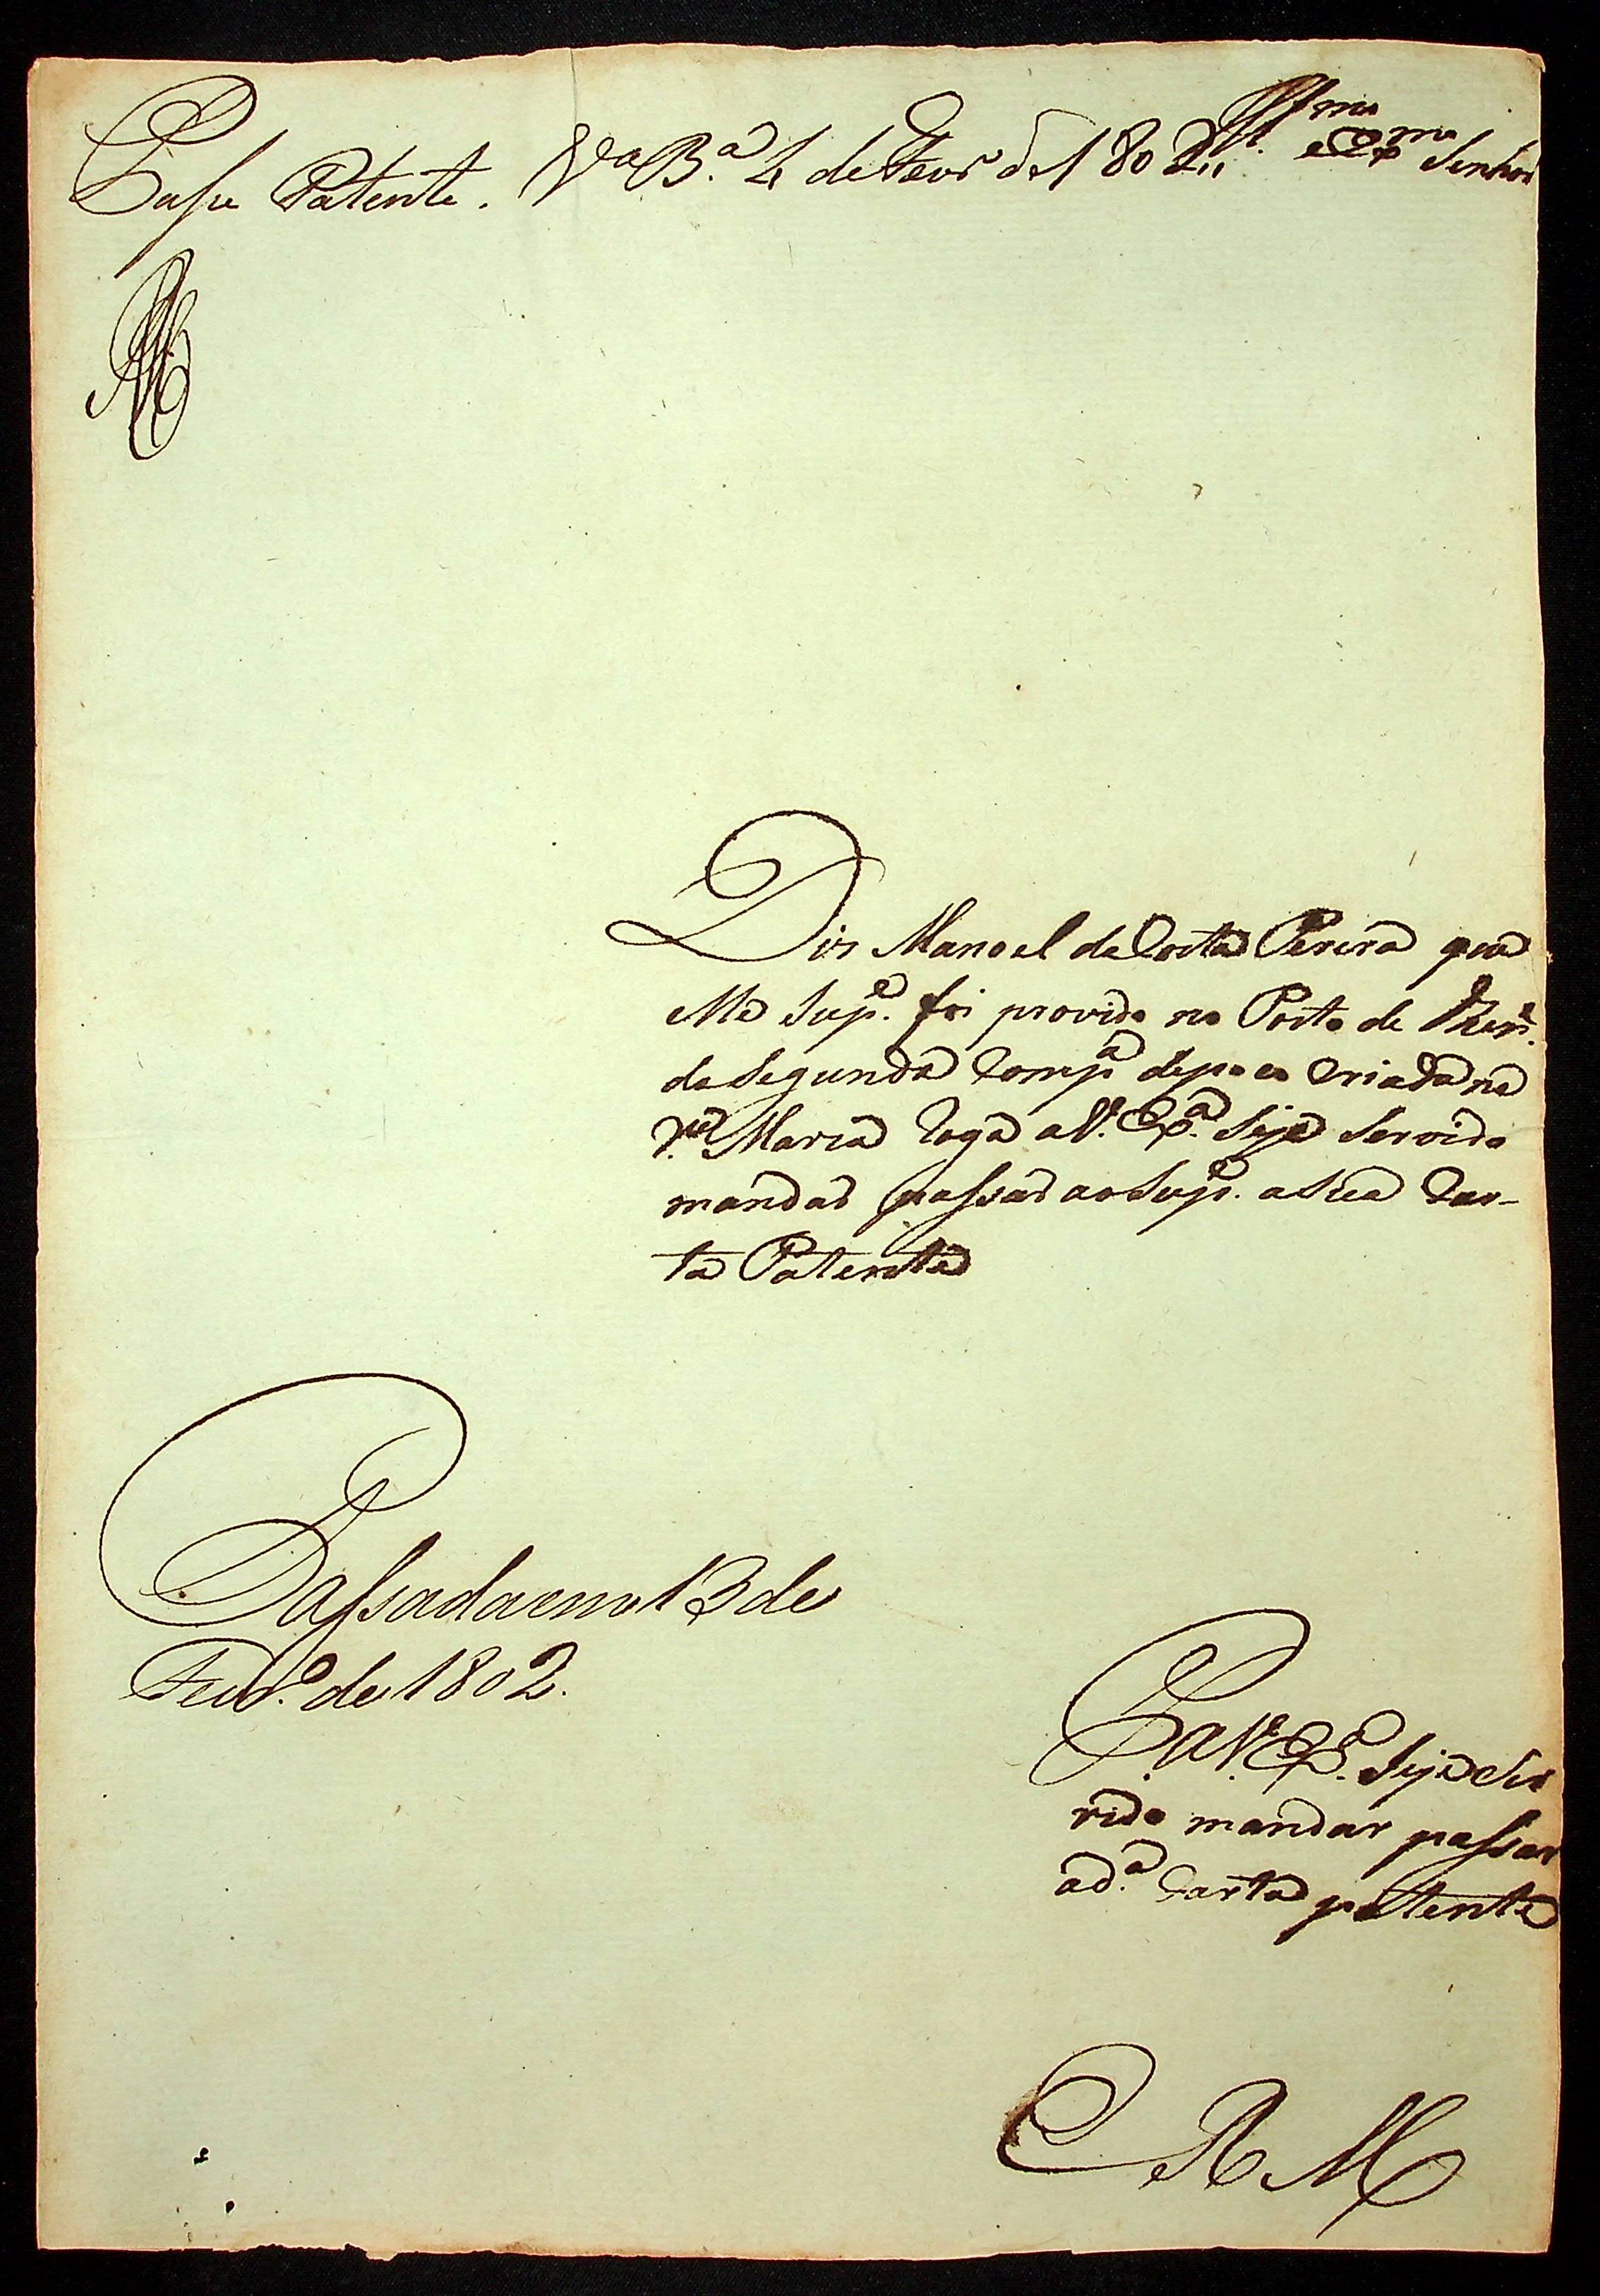 Passe Patente. Va Ba. 4 de Fevr. de 1802.,
Illmo. e Exmo. Senhor
Dis Manoel da Costa Perera que
elle Supe. foi provido no Posto de
da Segunda Compa de criada na
Va. Maria Roga a V. Exa. Seja Servido
mandar passar ao Supe. a Sua Car-
ta Patente
Passada em 13 de
Fevro. de 1802.
P. a V. Exa. Seja Ser
vido mandar passar
a da. Carta patente
E R M